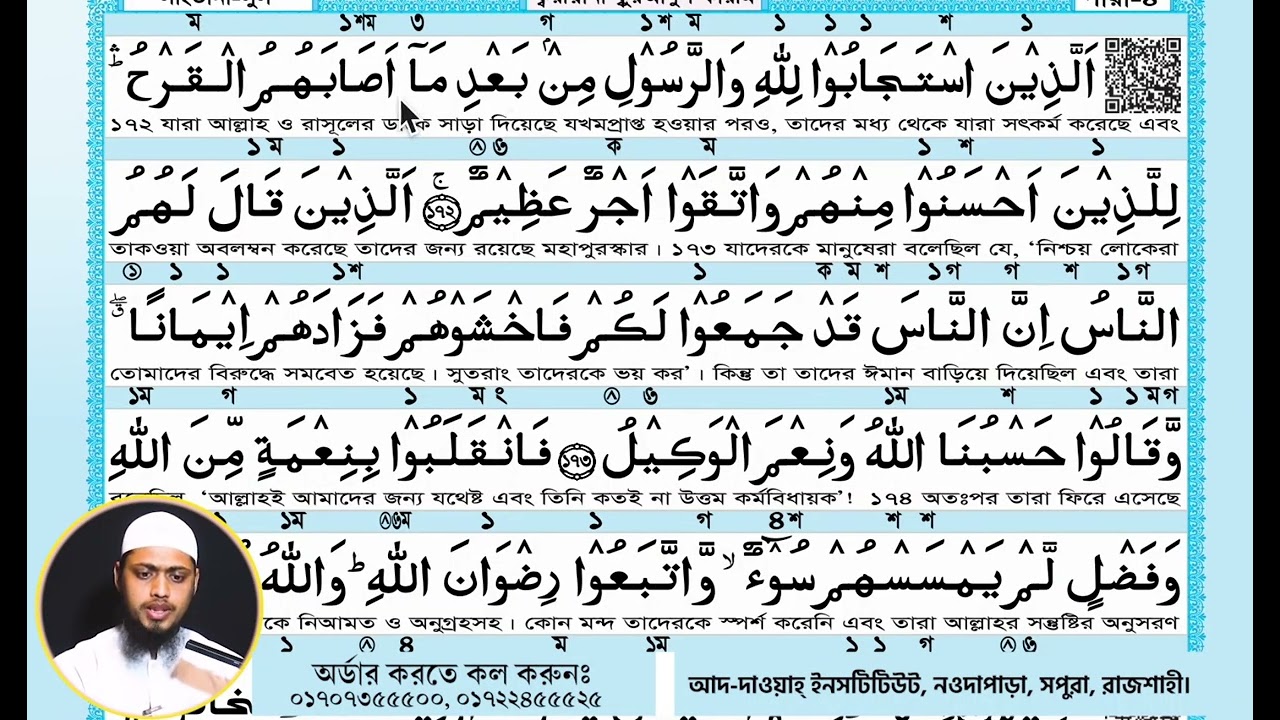 পারা-৪
م ১শম ৩ গ ১শ ম ১ ১ ১ শ ১
اَلَّذِيْنَ اسْتَجَابُوْا لِلّٰهِ وَالرَّسُوْلِ مِنْۢ بَعْدِ مَآ اَصَابَهُمُ الْقَرْحُ ؕۛ
১৭২ যারা আল্লাহ ও রাসূলের ডাকে সাড়া দিয়েছে যখমপ্রাপ্ত হওয়ার পরও, তাদের মধ্য থেকে যারা সৎকর্ম করেছে এবং
১ম ১ ⓐ৬ ক ম ১ শ ১
لِلَّذِيْنَ اَحْسَنُوْا مِنْهُمْ وَاتَّقَوْا اَجْرٌ عَظِيْمٌ ۚ ١٧٢ اَلَّذِيْنَ قَالَ لَهُمُ
তাকওয়া অবলম্বন করেছে তাদের জন্য রয়েছে মহাপুরস্কার। ১৭৩ যাদেরকে মানুষেরা বলেছিল যে, ‘নিশ্চয় লোকেরা
① ১ ১ ১শ ১ ক ম শ ১গ গ শ ১গ
النَّاسُ اِنَّ النَّاسَ قَدْ جَمَعُوْا لَكُمْ فَاخْشَوْهُمْ فَزَادَهُمْ اِيْمَانًا ۖق
তোমাদের বিরুদ্ধে সমবেত হয়েছে। সুতরাং তাদেরকে ভয় কর’। কিন্তু তা তাদের ঈমান বাড়িয়ে দিয়েছিল এবং তারা
১ম গ ১ ম ং ৬ ১ম শ ১ ১ ম গ
وَّقَالُوْا حَسْبُنَا اللّٰهُ وَنِعْمَ الْوَكِيْلُ ١٧٣ فَانْقَلَبُوْا بِنِعْمَةٍ مِّنَ اللّٰهِ
‘আল্লাহই আমাদের জন্য যথেষ্ট এবং তিনি কতই না উত্তম কর্মবিধায়ক’! ১৭৪ অতঃপর তারা ফিরে এসেছে
১ ১ম ৬ম ১ ১ গ ৪শ শ শ
وَفَضْلٍ لَّمْ يَمْسَسْهُمْ سُوْٓءٌ ۙ وَّاتَّبَعُوْا رِضْوَانَ اللّٰهِ ؕ وَاللّٰهُ
নিআমত ও অনুগ্রহসহ। কোন মন্দ তাদেরকে স্পর্শ করেনি এবং তারা আল্লাহর সন্তুষ্টির অনুসরণ
১ ৪ ম ১ম ১ ১ গ ৬
অর্ডার করতে কল করুনঃ
০১৭০৭৩৫৫৫০০, ০১৭২২৪৫৫৫২৫
আদ-দাওয়াহ্ ইনসটিটিউট, নওদাপাড়া, সপুরা, রাজশাহী।